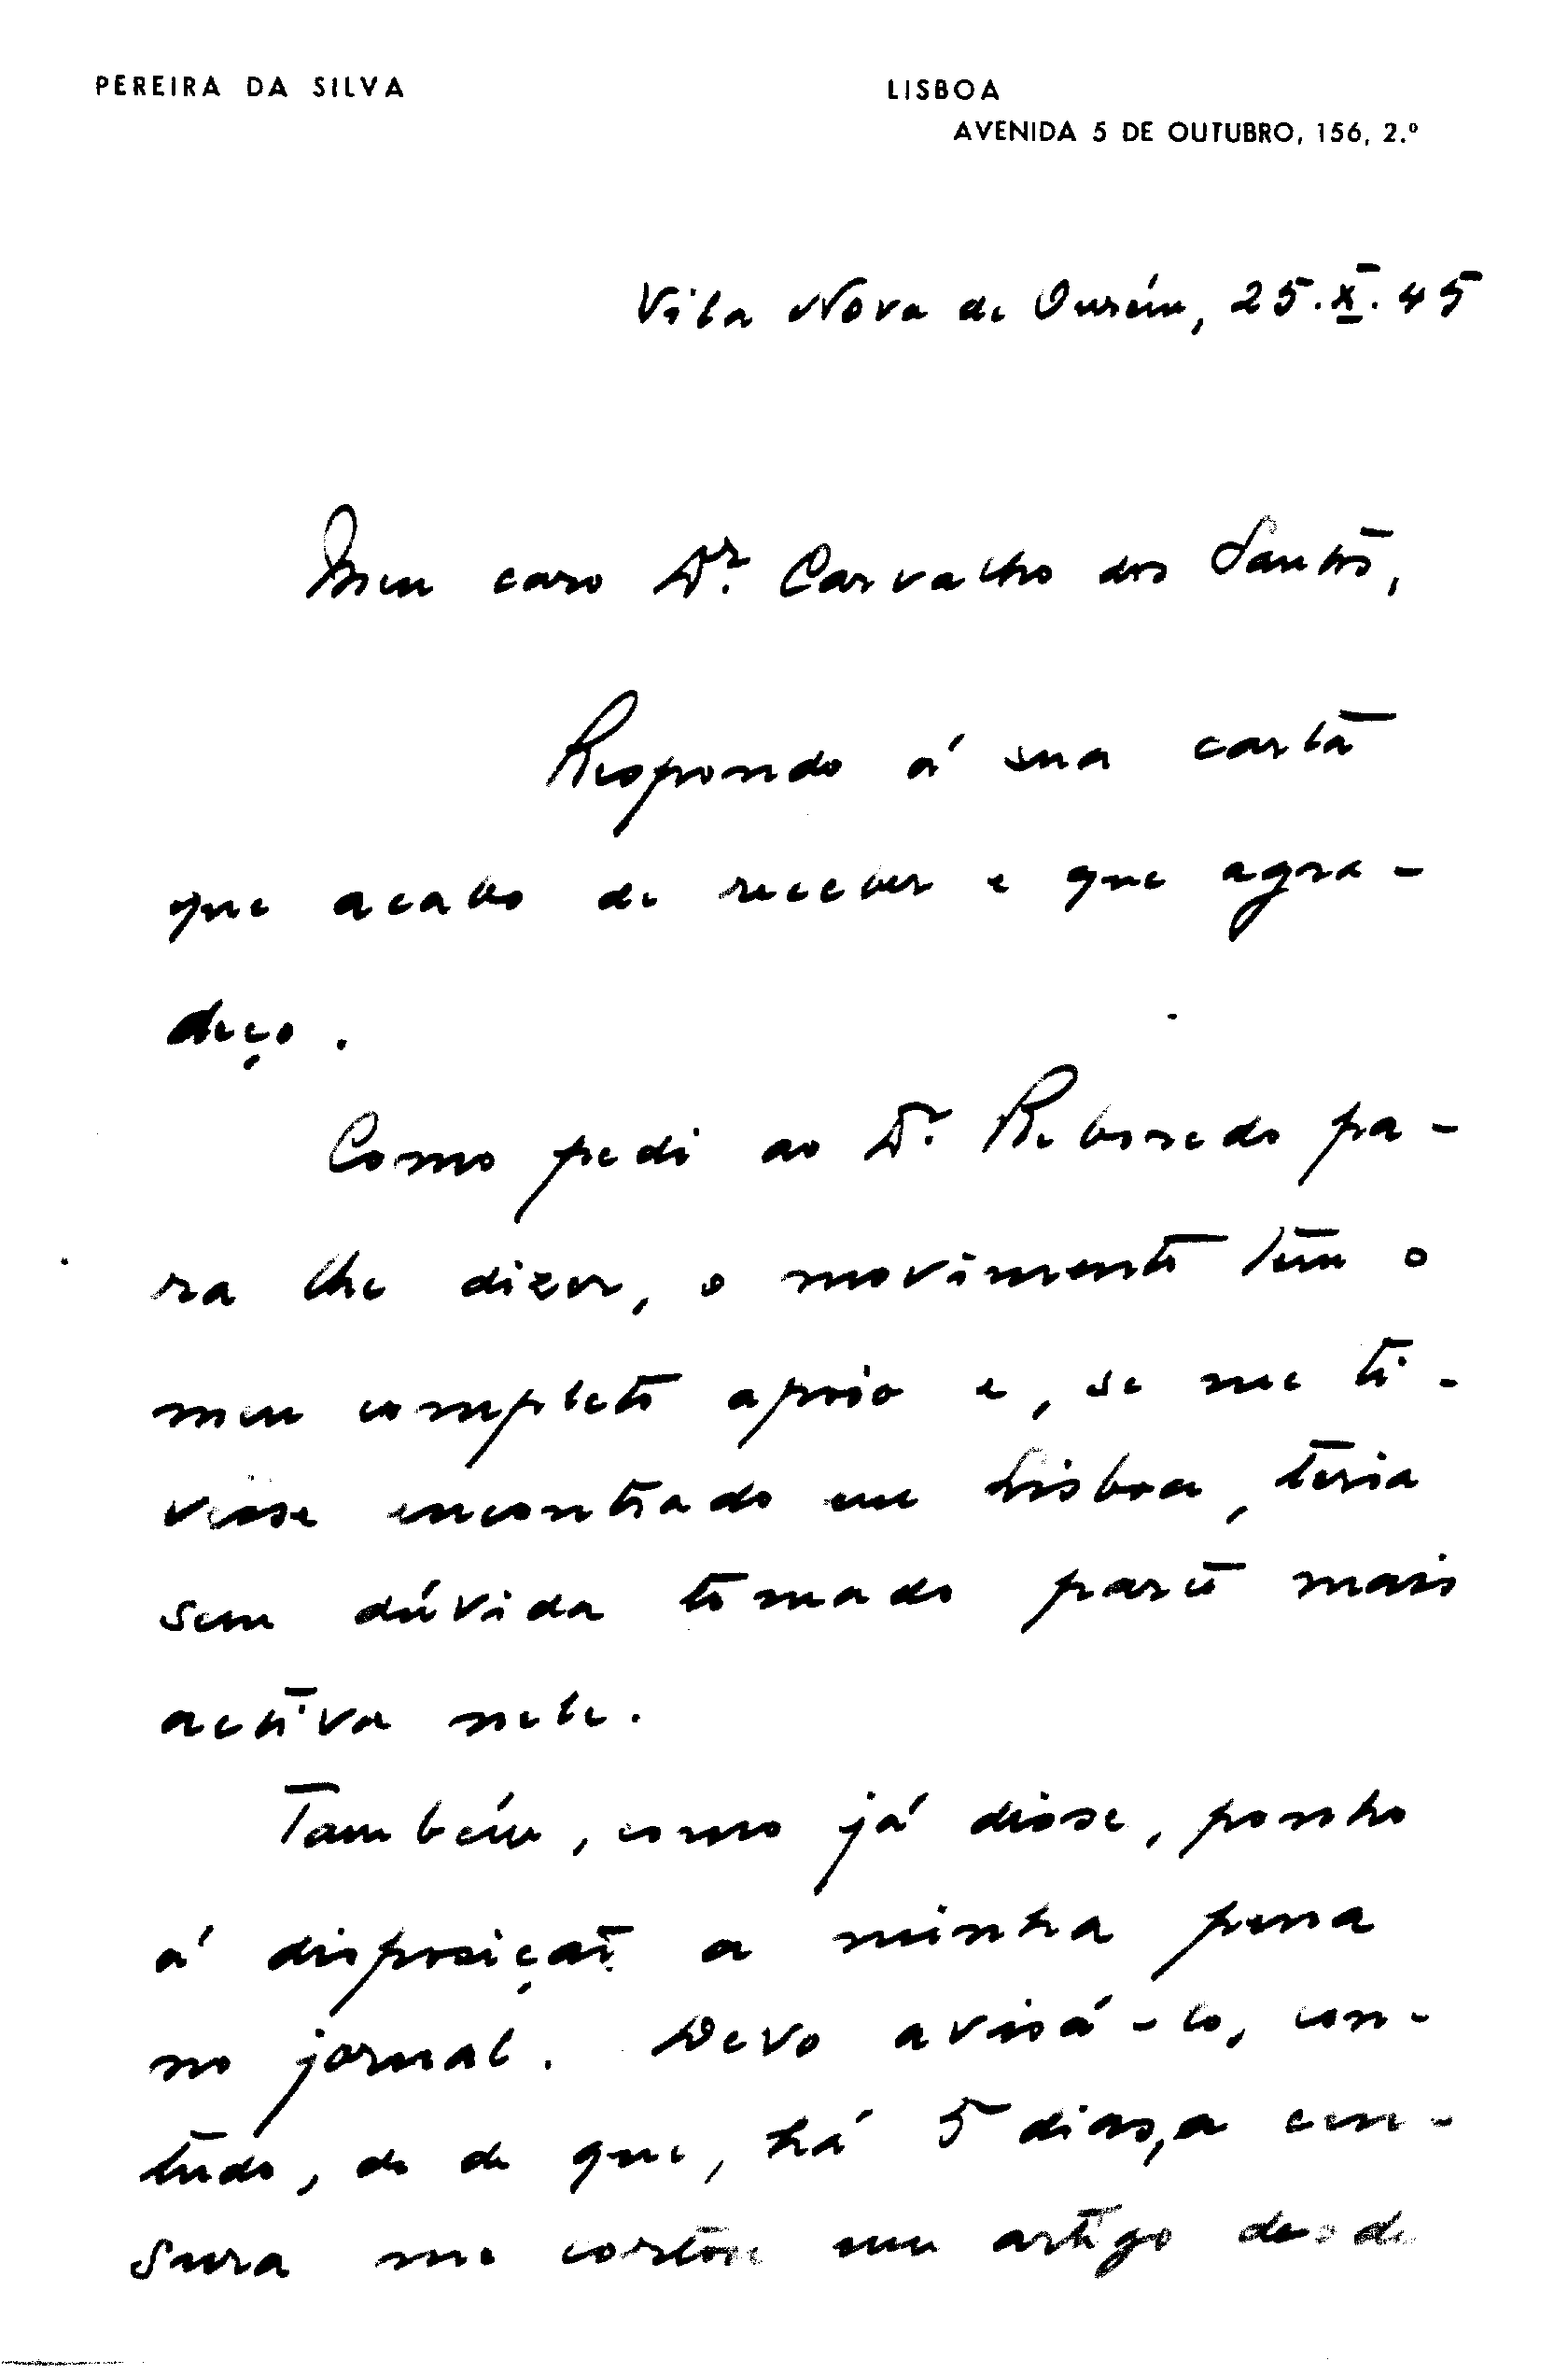 PEREIRA DA SILVA
LISBOA
AVENIDA 5 DE OUTUBRO, 156, 2.º
Vila Nova de Ourém, 25.X.45
Meu caro Dr. Carvalho dos Santos,
Respondo á sua carta
que acabo de receber e que agra-
deço.
Como pedi ao Dr. Reboredo pa-
ra lhe dizer, o movimento tem o
meu completo apoio e, se me ti-
vesse encontrado em Lisboa, teria
sem dúvida tomado parte mais
activa nele.
Também, como já disse, ponho
á disposição a minha pena
no jornal. Devo avisá-lo, con-
tudo, do de que, há 5 dias, a cen-
sura me cortou um artigo desde